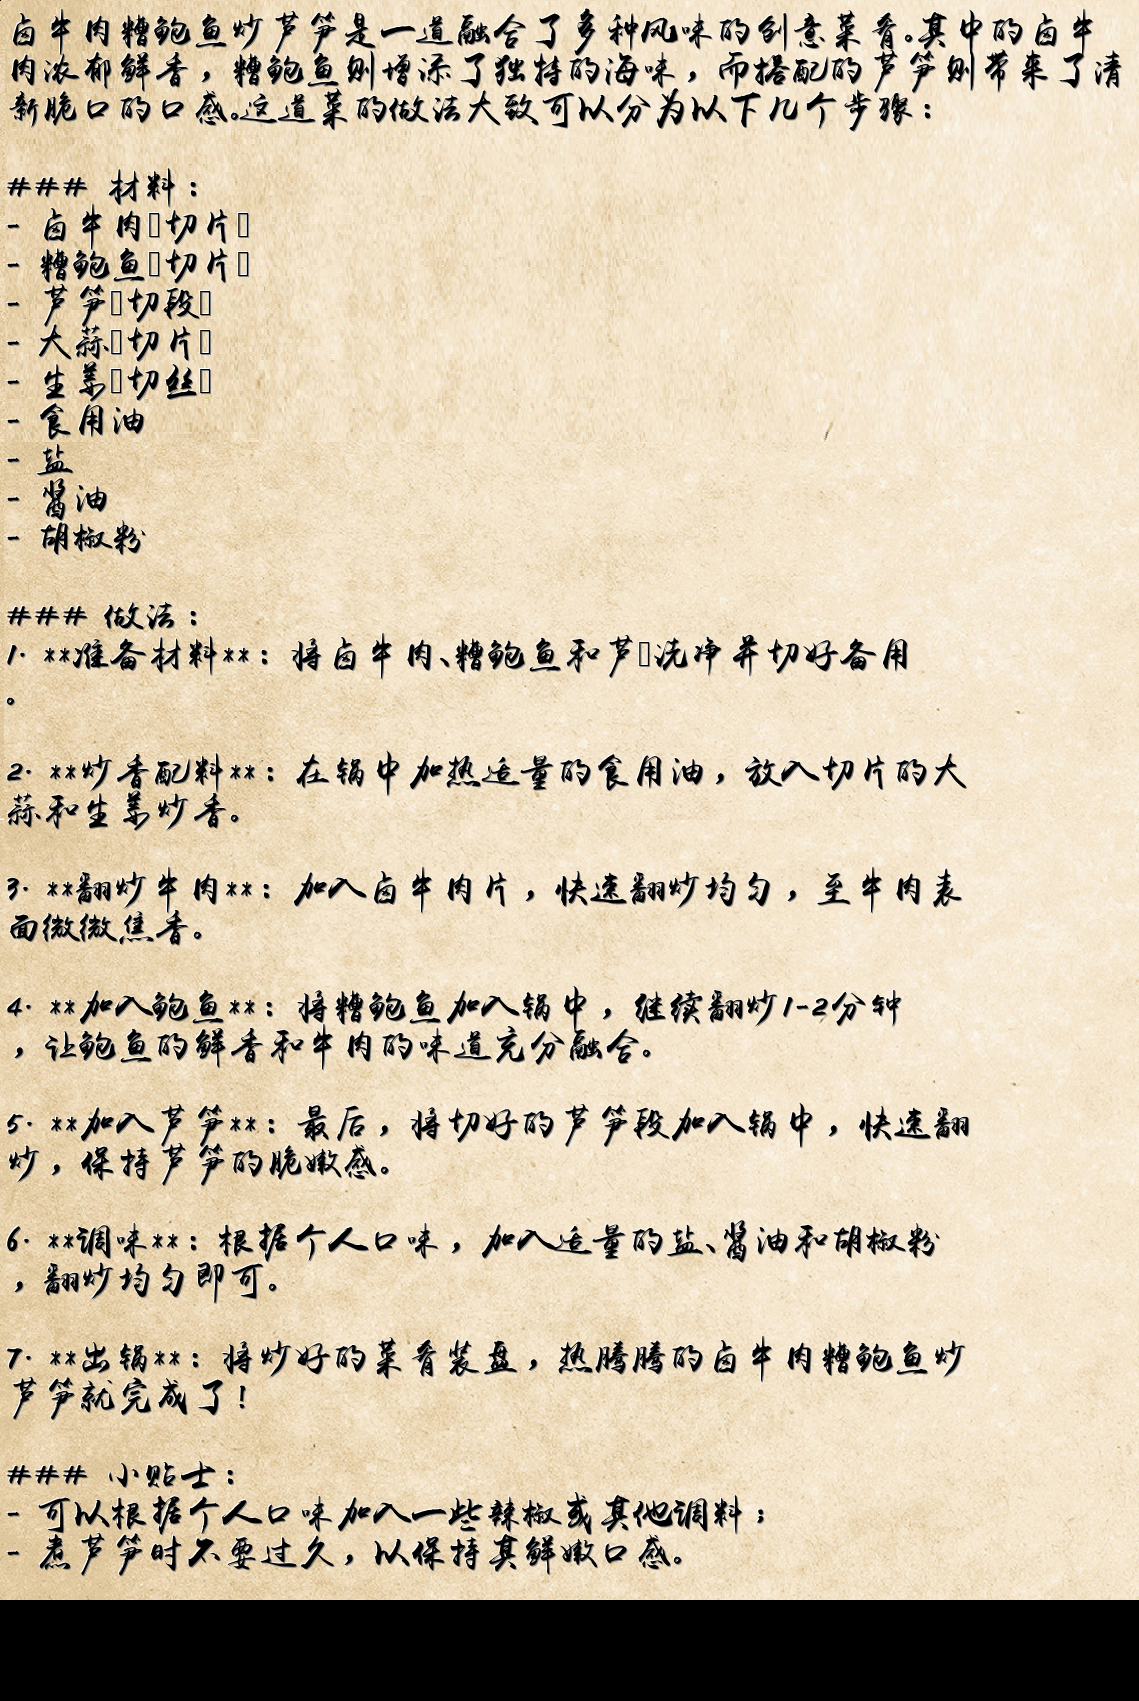 卤牛肉糟鲍鱼炒芦笋是一道融合了多种风味的创意菜肴。其中的卤牛
肉浓郁鲜香，糟鲍鱼则增添了独特的海味，而搭配的芦笋则带来了清
新脆口的口感。这道菜的做法大致可以分为以下几个步骤：
### 材料：
- 卤牛肉▯切片▯
- 糟鲍鱼▯切片▯
- 芦笋▯切段▯
- 大蒜▯切片▯
- 生姜▯切丝▯
- 食用油
- 盐
- 酱油
- 胡椒粉
### 做法：
1. **准备材料**：将卤牛肉、糟鲍鱼和芦▯洗净并切好备用
。
2. **炒香配料**：在锅中加热适量的食用油，放入切片的大
蒜和生姜炒香。
3. **翻炒牛肉**：加入卤牛肉片，快速翻炒均匀，至牛肉表
面微微焦香。
4. **加入鲍鱼**：将糟鲍鱼加入锅中，继续翻炒1-2分钟
，让鲍鱼的鲜香和牛肉的味道充分融合。
5. **加入芦笋**：最后，将切好的芦笋段加入锅中，快速翻
炒，保持芦笋的脆嫩感。
6. **调味**：根据个人口味，加入适量的盐、酱油和胡椒粉
，翻炒均匀即可。
7. **出锅**：将炒好的菜肴装盘，热腾腾的卤牛肉糟鲍鱼炒
芦笋就完成了！
### 小贴士：
- 可以根据个人口味加入一些辣椒或其他调料；
- 煮芦笋时不要过久，以保持其鲜嫩口感。